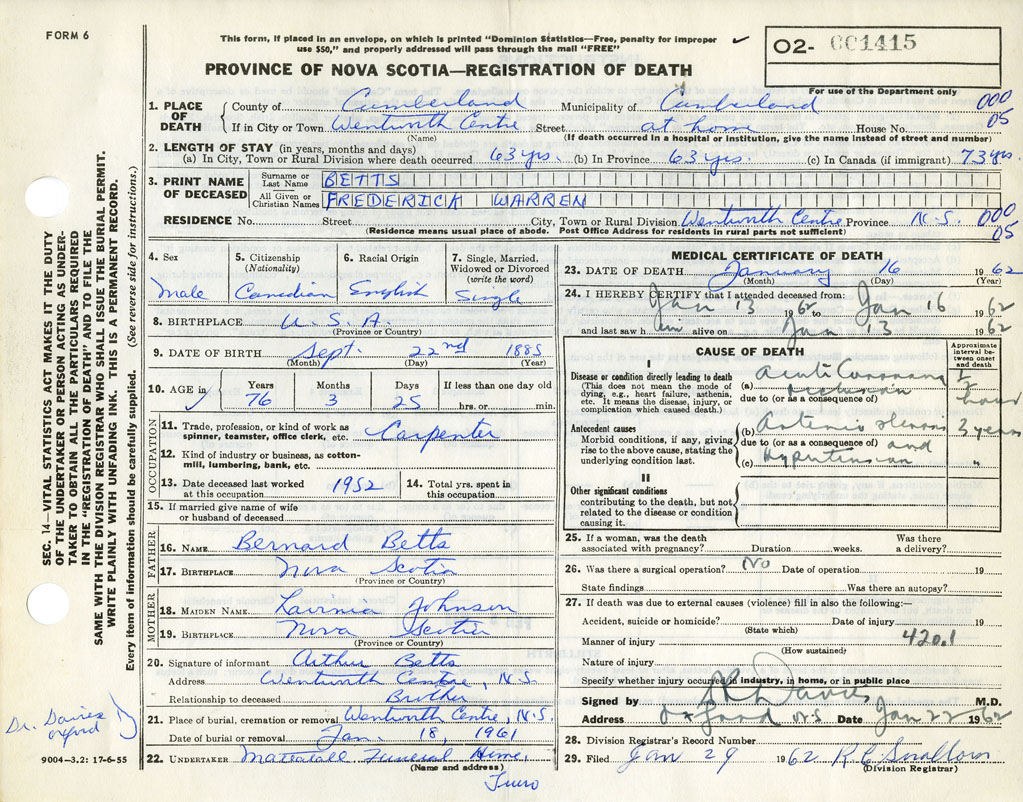 FORM 6
This form, if placed in an envelope, on which is printed "Dominion Statistics—Free, penalty for improper
use $50," and properly addressed will pass through the mail "FREE"
PROVINCE OF NOVA SCOTIA—REGISTRATION OF DEATH
02- 001415
For use of the Department only
1. PLACE OF DEATH County of Cumberland Municipality of Cumberland 000
If in City or Town Wentworth Centre Street at home House No. 05
(Name) (If death occurred in a hospital or institution, give the name instead of street and number)
2. LENGTH OF STAY (in years, months and days)
(a) In City, Town or Rural Division where death occurred 63 yrs. (b) In Province 63 yrs. (c) In Canada (if immigrant) 73 yrs
3. PRINT NAME OF DECEASED Surname or Last Name BETTS
All Given or Christian Names FREDERICK WARREN
RESIDENCE No. Street City, Town or Rural Division Wentworth Centre Province N.S. 000
(Residence means usual place of abode. Post Office Address for residents in rural parts not sufficient) 05
4. Sex Male
5. Citizenship (Nationality) Canadian
6. Racial Origin English
7. Single, Married, Widowed or Divorced (write the word) Single
8. BIRTHPLACE U.S.A.
(Province or Country)
9. DATE OF BIRTH Sept. 22nd 1885
(Month) (Day) (Year)
10. AGE in Years Months Days If less than one day old
76 3 25 hrs. or min.
OCCUPATION
11. Trade, profession, or kind of work as
spinner, teamster, office clerk, etc. Carpenter
12. Kind of industry or business, as cotton-
mill, lumbering, bank, etc.
13. Date deceased last worked
at this occupation 1952
14. Total yrs. spent in
this occupation
15. If married give name of wife
or husband of deceased
FATHER
16. NAME Bernard Betts
17. BIRTHPLACE Nova Scotia
(Province or Country)
MOTHER
18. MAIDEN NAME Lavinia Johnson
19. BIRTHPLACE Nova Scotia
(Province or Country)
20. Signature of informant Arthur Betts
Address Wentworth Centre, N.S.
Relationship to deceased Brother
21. Place of burial, cremation or removal Wentworth Centre, N.S.
Date of burial or removal Jan. 18, 1961
22. UNDERTAKER Mattatall Funeral Home,
(Name and address)
Truro
MEDICAL CERTIFICATE OF DEATH
23. DATE OF DEATH January 16 1962
(Month) (Day) (Year)
24. I HEREBY CERTIFY that I attended deceased from:
Jan 13 1962 to Jan 16 1962
and last saw him alive on Jan 13 1962
CAUSE OF DEATH
Approximate interval between onset and death
I
Disease or condition directly leading to death
(This does not mean the mode of
dying, e.g., heart failure, asthenia,
etc. It means the disease, injury, or
complication which caused death.)
(a) Acute Coronary 1/2
due to (or as a consequence of) occlusion hour
Antecedent causes
Morbid conditions, if any, giving
rise to the above cause, stating the
underlying condition last.
(b) Arterio sclerosis 3 years
due to (or as a consequence of) and
(c) hypertension "
II
Other significant conditions
contributing to the death, but not
related to the disease or condition
causing it.
25. If a woman, was the death
associated with pregnancy? Duration weeks. Was there
a delivery?
26. Was there a surgical operation? No Date of operation 19
State findings Was there an autopsy?
27. If death was due to external causes (violence) fill in also the following:—
Accident, suicide or homicide? Date of injury 19
(State which)
Manner of injury 420.1
(How sustained)
Nature of injury
Specify whether injury occurred in industry, in home, or in public place
Signed by J R L Davies M.D.
Address Oxford N.S. Date Jan 22 1962
28. Division Registrar's Record Number
29. Filed Jan 29 1962 R C Smallow
(Division Registrar)
SEC. 14—VITAL STATISTICS ACT MAKES IT THE DUTY
OF THE UNDERTAKER OR PERSON ACTING AS UNDER-
TAKER TO OBTAIN ALL THE PARTICULARS REQUIRED
IN THE "REGISTRATION OF DEATH" AND TO FILE THE
SAME WITH THE DIVISION REGISTRAR WHO SHALL ISSUE THE BURIAL PERMIT.
WRITE PLAINLY WITH UNFADING INK. THIS IS A PERMANENT RECORD.
Every item of information should be carefully supplied. (See reverse side for instructions.)
Dr. Davies
Oxford
9004-3.2: 17-6-55